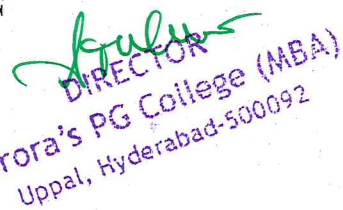 DIRECTOR
rora's PG College (MBA)
Uppal, Hyderabad-500092